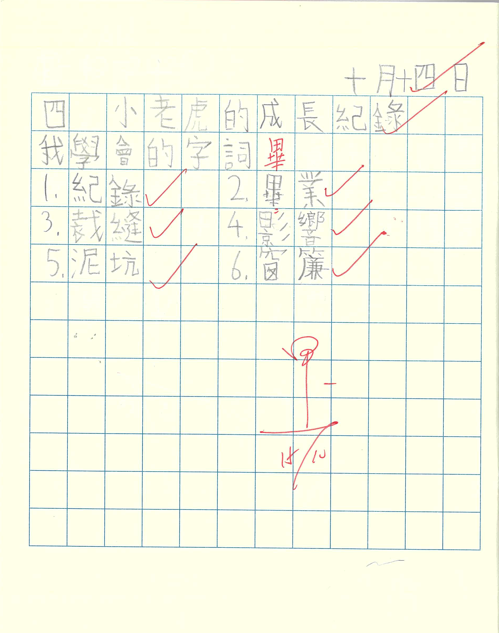 十月十四日
四 小老虎的成長紀錄
我學會的字詞 畢
1.紀錄 2.畢業
3.裁縫 4.影響
5.泥坑 6.窗簾
甲
15/10